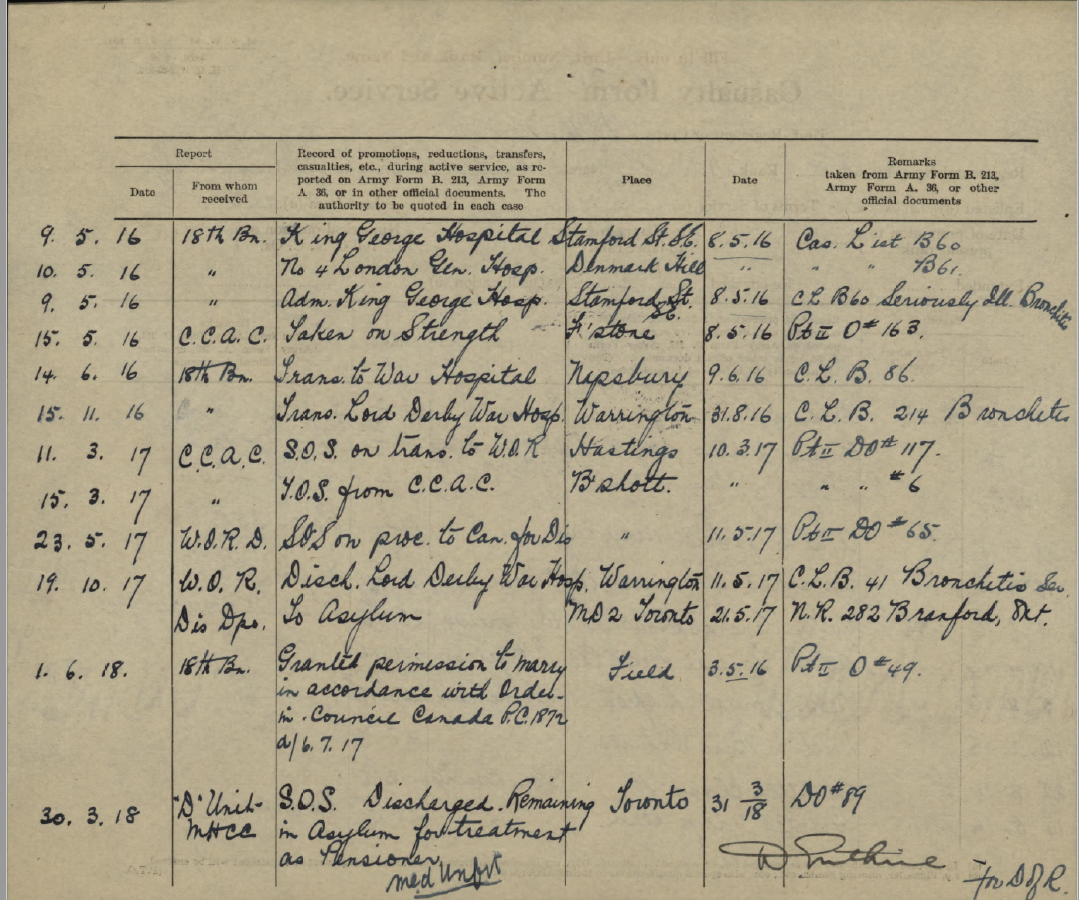 Report
Record of promotions, reductions, transfers,
casualties, etc., during active service, as re-
ported on Army Form B. 213, Army Form
A. 36, or in other official documents. The
authority to be quoted in each case
Place
Date
Remarks
taken from Army Form B. 213,
Army Form A. 36, or other
official documents
Date
From whom
received
9. 5. 16 18th Bn. King George Hospital Stamford St. S.E. 8.5.16 Cas. List B60
10. 5. 16 " No 4 London Gen. Hosp. Denmark Hill " " " B61.
9. 5. 16 " Adm. King George Hosp. Stamford St. S.E. 8.5.16 C.L. B60 Seriously Ill. Bronchitis
15. 5. 16 C.C.A.C. Taken on Strength F'stone 8.5.16 Pt II O # 163.
14. 6. 16 18th Bn. Trans. to War Hospital Napsbury 9.6.16 C.L. B. 86.
15. 11. 16 " Trans. Lord Derby War Hosp. Warrington 31.8.16 C.L.B. 214 Bronchitis
11. 3. 17 C.C.A.C. S.O.S. on trans. to W.O.R Hastings 10.3.17 Pt II DO # 117.
15. 3. 17 " T.O.S. from C.C.A.C. B'shott. " " " # 6
23. 5. 17 W.O.R.D. SOS on proc. to Can. for Dis " 11.5.17 Pt II DO # 65.
19. 10. 17 W.O.R. Disch. Lord Derby War Hosp. Warrington 11.5.17 C.L.B. 41 Bronchitis
Dis Dpo. To Asylum MD2 Toronto 21.5.17 N.R. 282 Branford, Ont.
1. 6. 18. 18th Bn. Granted permission to marry Field 3.5.16 Pt II O # 49.
in accordance with Order-
in-Council Canada P.C. 1872
d/6.7.17
30. 3. 18 "D" Unit S.O.S. Discharged. Remaining Toronto 31 3/18 DO # 89
MHCC in Asylum for treatment
as Pensioner
med Unfit
For D of R.